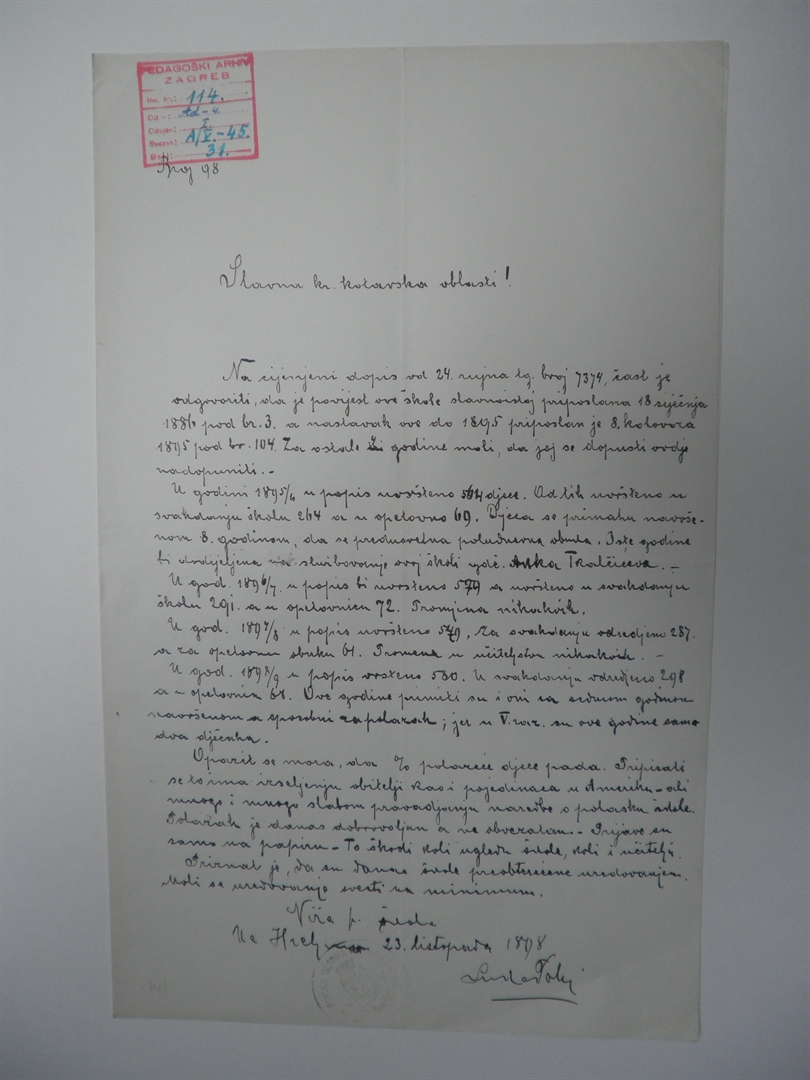 PEDAGOŠKI ARHIV
ZAGREB
Inv. br.: 114.
Od –: Ad – 4.
Odsjek: I.
Svezak: A/V. – 45.
Broj: 31.
Broj 98
Slavna kr. kotarska oblasti!
Na cijenjeni dopis od 24. rujna tg. broj 7374, čast je
odgovoriti, da je povijest ove škole slavnoistoj priposlana 18 siječnja
pod br. 3. a nastavak ove do 1895 priposlan je 8. kolovoza
1895 pod br. 104. Za ostale godine moli, da joj se dopusti ovdje
nadopuniti. –
U godini 1895/6 u popis uvršteno djece. Od tih uvršteno u
svakdanju školu 264 a u opetovnu 69. Djeca se primahu navrše-
nom 8. godinom, da se predusretna poludnevna obuka. Iste godine
bi dodijeljena na službovanje ovoj školi gdč. Anka Tkalčićeva. –
U god. 1896/7. u popis bi uvršteno 579 a uvršteno u svakdanju
školu 291. a u opetovnicu 72. Promjena nikakvih.
U god. 1897/8 u popis uvršteno 549, za svakdanju odredjeno 287.
a za opetovnu obuku 61. Promena u učiteljstvu nikakvih. –
U god. 1898/9 u popis vršteno 580. U svakdanju odredjeno 298
a u opetovnicu 68. Ove godine primiti su i oni sa sedmom godinom
navršenom a sposobni za polazak; jer u V. raz. su ove godine samo
dva dječaka.
Opaziti se mora, da % polazeće djece pada. Pripisati
se to ima izseljenju obitelji kao i pojedinaca u Ameriku – ali
mnogo i mnogo slabom provadjanju naredbe o polasku škole.
Polazak je danas dobrovoljan a ne obvezatan. – Prijave su
samo na papiru – To škodi koli ugledu škole, koli i učitelji.
Priznat je, da su danas škole preobterećene uredovanjem.
Moli se uredovanje svesti na minimum.
Niža p. škola
Na Hreljinu 23. listopada 1898